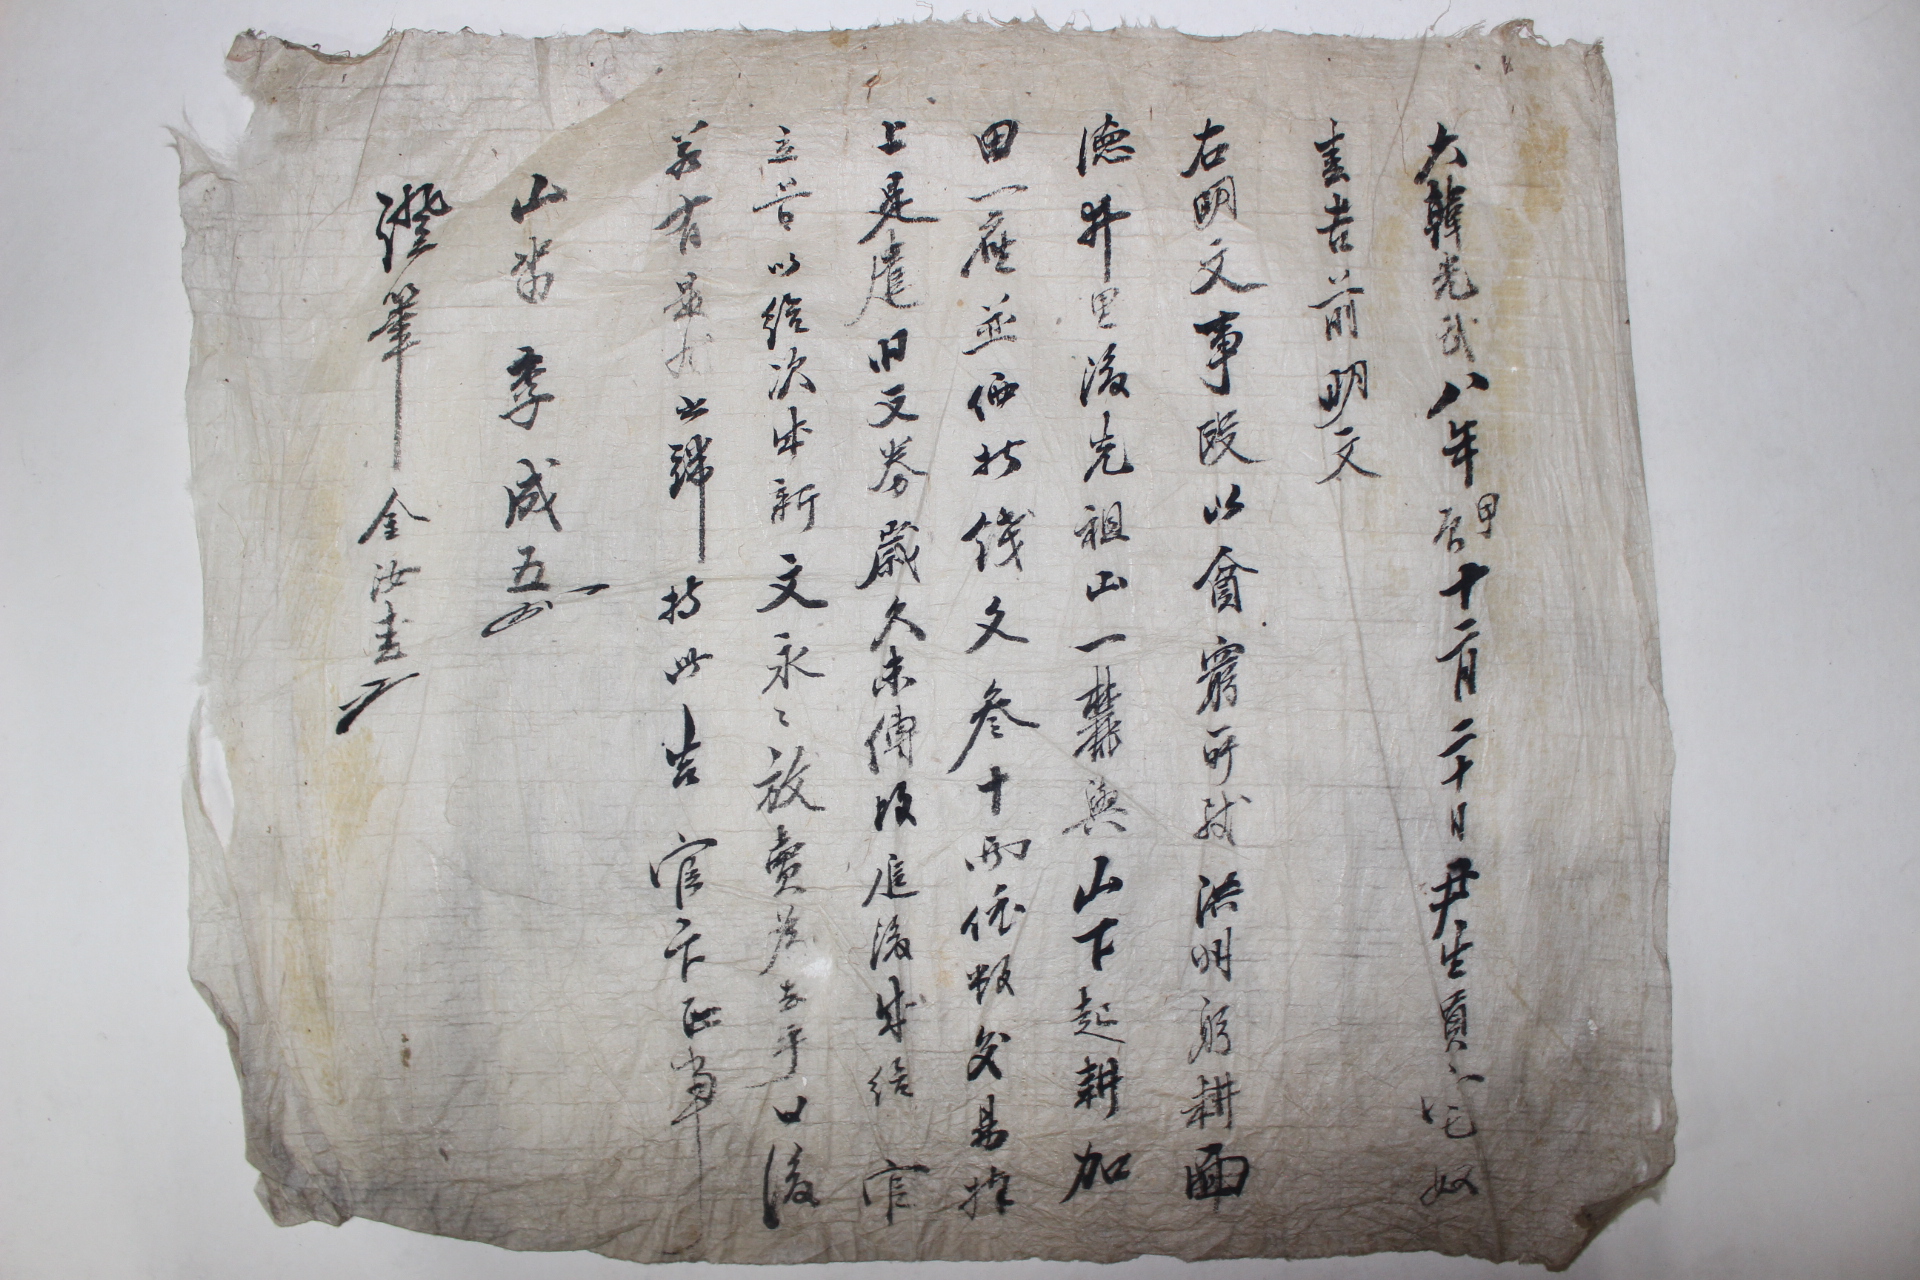 大韓光武八年甲辰十二月二十日尹生員宅奴
圭吉前明文
右明文事段以貧窮所致洪明躬耕面
德井里後先祖山一麓與山下起耕加
田一庫並価折錢文叁十兩依數交易捧
上是遣旧文券歲久未傳故追後成給官
立旨以給次成新文永〻放賣爲去乎日後
若有是非之端持此告官卞正事
山主李成五
證筆金汝圭